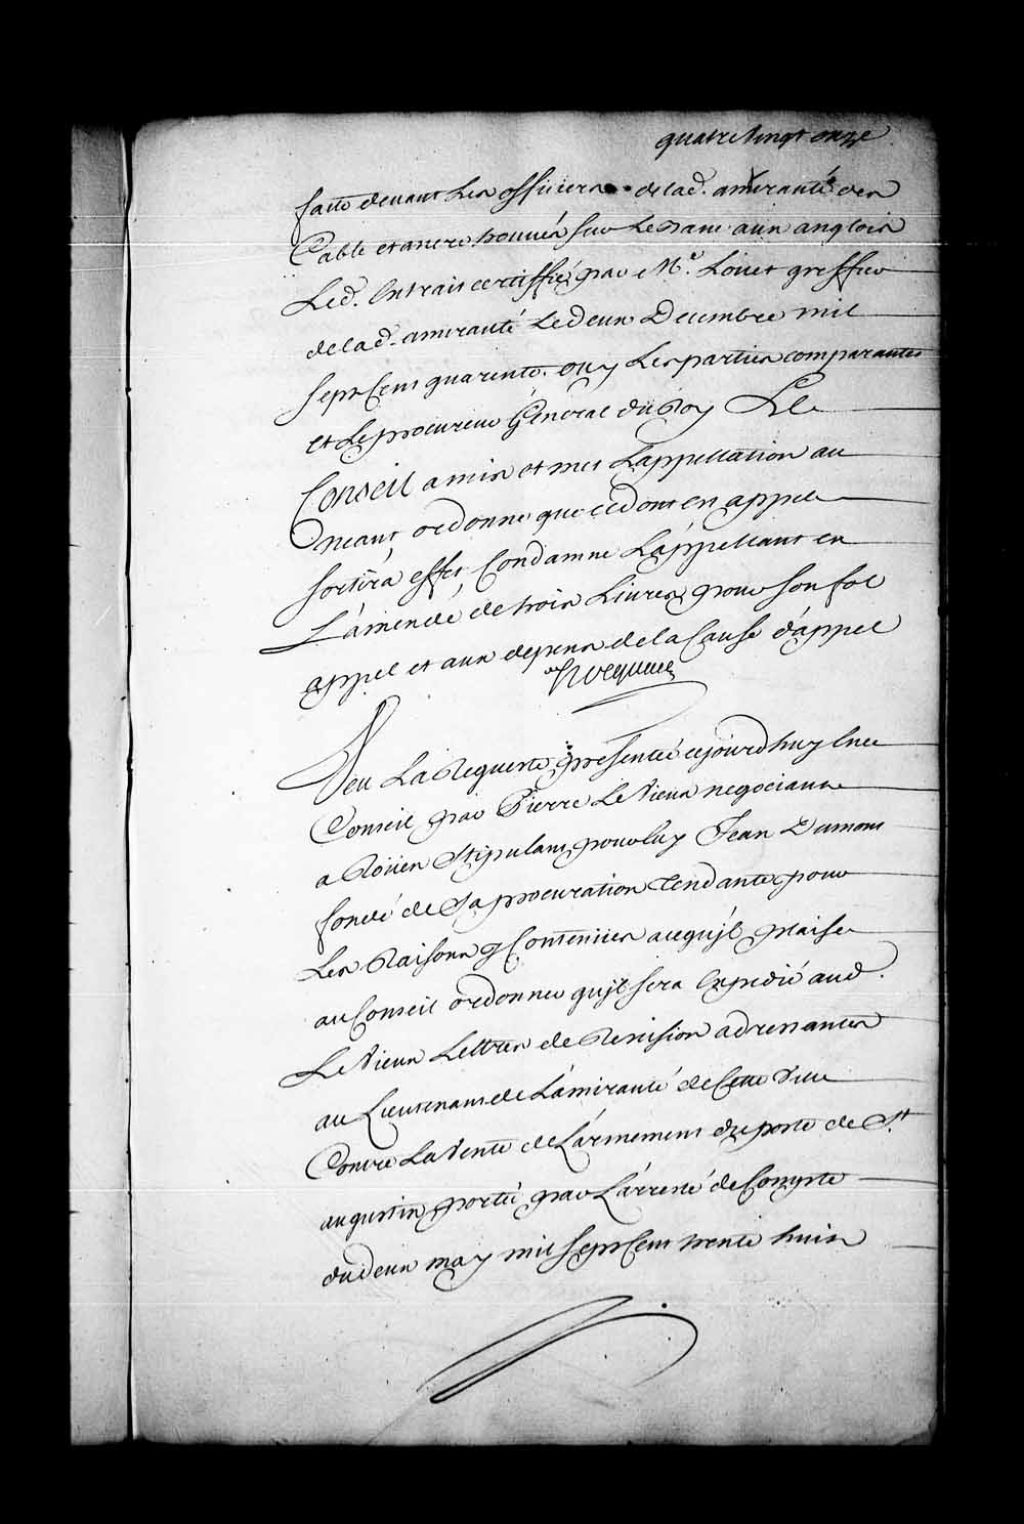 quatre vingt onze
faite devant Les officiers de lad. amirauté des
Cable et ancre trouvés sur Le banc aux anglois
Led. Extrait certiffié par Me. Louet greffier
de lad. amirauté Le deux Decembre mil
sept Cent quarente. ouy Les parties comparantes
et Le procureur General du Roy Le
Conseil a mis et met L'appellation au
Neant ordonne que ce dont en appel
sortira effet, Condamne L'appellant en
L'amende de trois Livres pour son fol
appel et aux depens de la Cause d'appel
hocquart
Veu La Requeste presentée cejourdhuy En ce
Conseil par Pierre Le Vieux negociant
a Roüen Stipulant pour luy Jean Dumont
fondé de Sa procuration tendante pour
Les Raisons y Contenües a ce qu'jl plaise
au Conseil ordonner qu'jl sera Expedié aud.
Le Vieux Lettres de Revision adressantes
au Lieutenant de L'amirauté de Cette ville
Contre La Vente de L'armement du poste de St.
augustin porté par L'arresté de Compte
du deux may mil sept Cent trente huit